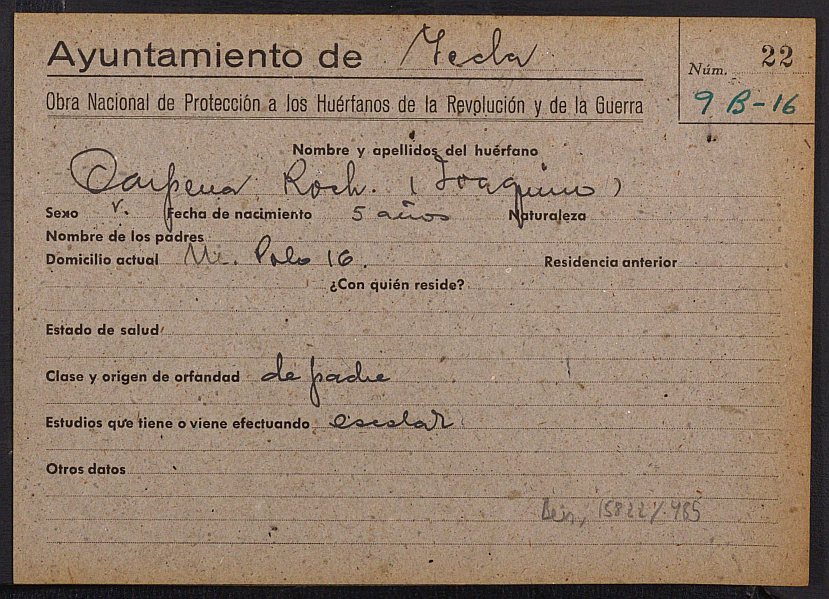 Ayuntamiento de Yecla
Núm. 22
9 B-16
Obra Nacional de Protección a los Huérfanos de la Revolución y de la Guerra
Nombre y apellidos del huérfano
Carpena Roch. (Joaquin)
Sexo v. Fecha de nacimiento 5 años Naturaleza
Nombre de los padres
Domicilio actual Polo 16. Residencia anterior
¿Con quién reside?
Estado de salud
Clase y origen de orfandad de padre
Estudios que tiene o viene efectuando escolar
Otros datos
15822/485